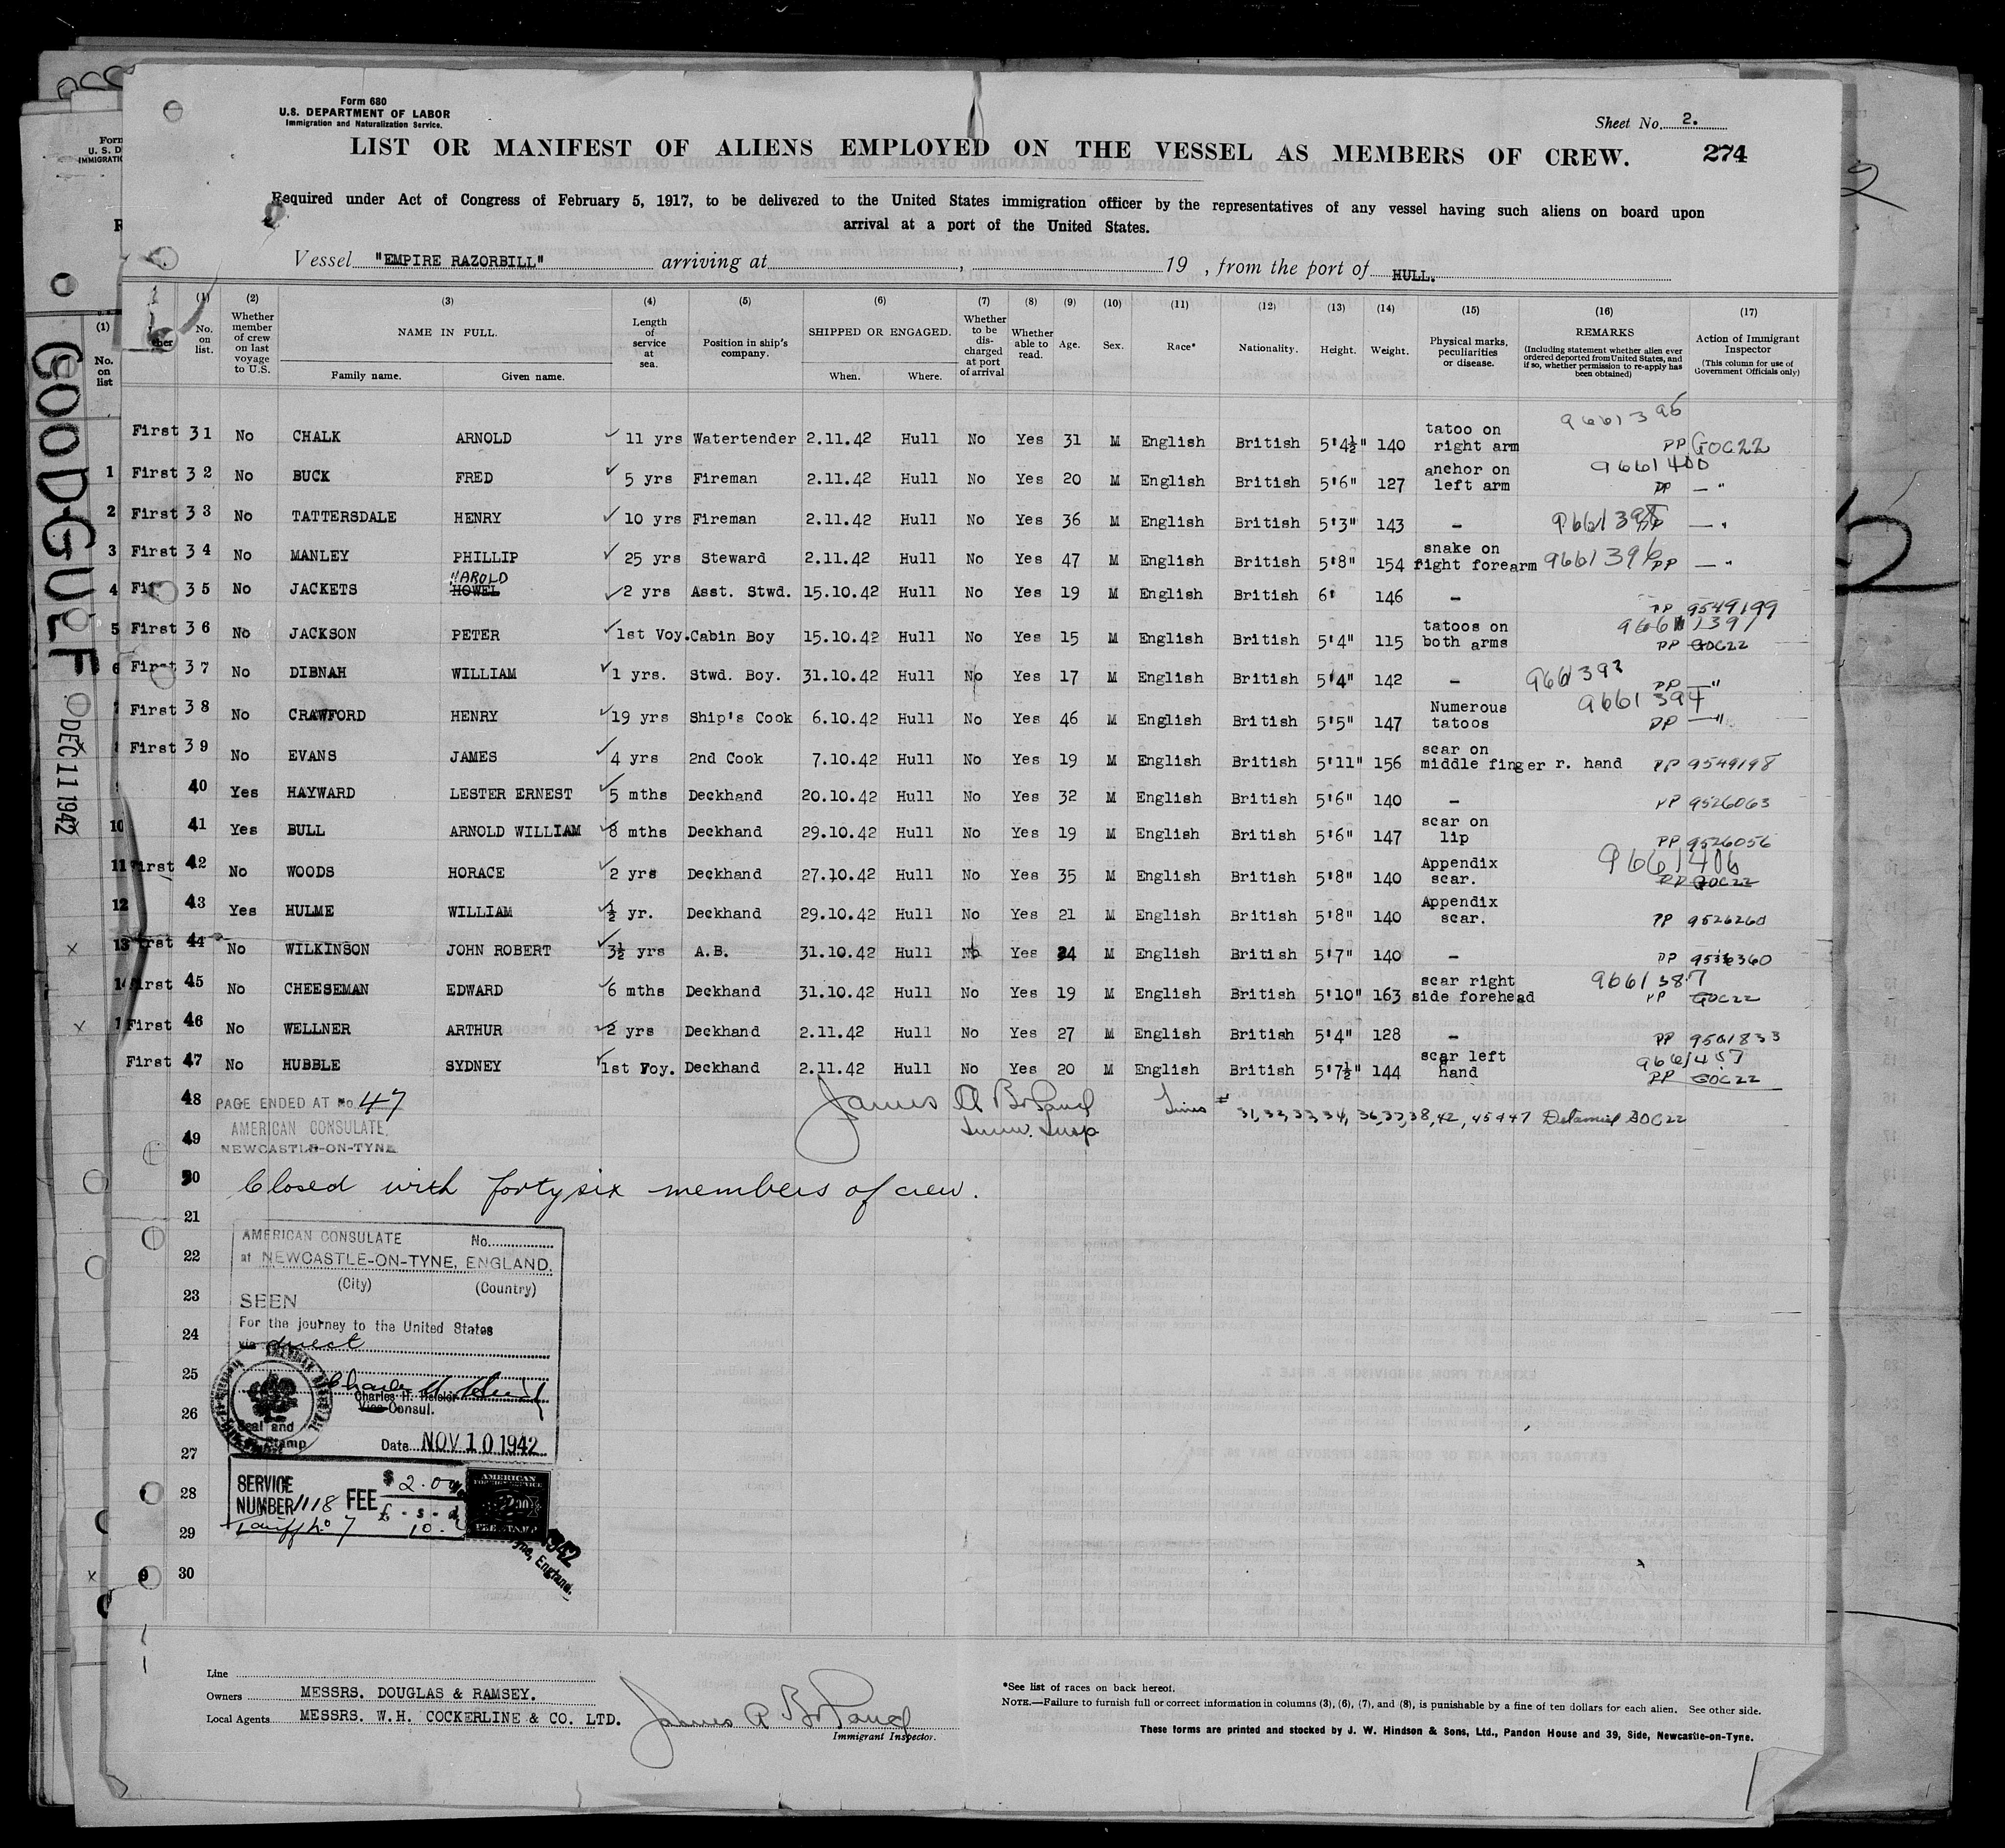 Form 680
U.S. DEPARTMENT OF LABOR
Immigration and Naturalization Service.
Sheet No. 2.
LIST OR MANIFEST OF ALIENS EMPLOYED ON THE VESSEL AS MEMBERS OF CREW. 274
Required under Act of Congress of February 5, 1917, to be delivered to the United States immigration officer by the representatives of any vessel having such aliens on board upon
arrival at a port of the United States.
Vessel "EMPIRE RAZORBILL" arriving at , 19 , from the port of HULL.
(1) (2) (3) (4) (5) (6) (7) (8) (9) (10) (11) (12) (13) (14) (15) (16) (17)
No. on list.
Whether member of crew on last voyage to U.S.
NAME IN FULL.
Family name. Given name.
Length of service at sea.
Position in ship's company.
SHIPPED OR ENGAGED.
When. Where.
Whether to be discharged at port of arrival
Whether able to read.
Age.
Sex.
Race*
Nationality.
Height.
Weight.
Physical marks, peculiarities or disease.
REMARKS
(Including statement whether alien ever ordered deported from United States, and if so, whether permission to re-apply has been obtained)
Action of Immigrant Inspector
(This column for use of Government Officials only)
First 31 No CHALK ARNOLD 11 yrs Watertender 2.11.42 Hull No Yes 31 M English British 5'4½" 140 tatoo on right arm PP GOC22
First 32 No BUCK FRED 5 yrs Fireman 2.11.42 Hull No Yes 20 M English British 5'6" 127 anchor on left arm 9661400 PP — "
First 33 No TATTERSDALE HENRY 10 yrs Fireman 2.11.42 Hull No Yes 36 M English British 5'3" 143 – PP — "
First 34 No MANLEY PHILLIP 25 yrs Steward 2.11.42 Hull No Yes 47 M English British 5'8" 154 snake on right forearm 9661396 PP — "
35 No JACKETS HAROLD HOWEL 2 yrs Asst. Stwd. 15.10.42 Hull No Yes 19 M English British 6' 146 – PP 9549199
First 36 No JACKSON PETER 1st Voy. Cabin Boy 15.10.42 Hull No Yes 15 M English British 5'4" 115 tatoos on both arms PP GOC22
First 37 No DIBNAH WILLIAM 1 yrs. Stwd. Boy. 31.10.42 Hull No Yes 17 M English British 5'4" 142 – PP — "
First 38 No CRAWFORD HENRY 19 yrs Ship's Cook 6.10.42 Hull No Yes 46 M English British 5'5" 147 Numerous tatoos 9661394 PP — "
First 39 No EVANS JAMES 4 yrs 2nd Cook 7.10.42 Hull No Yes 19 M English British 5'11" 156 scar on middle finger r. hand PP 9549198
40 Yes HAYWARD LESTER ERNEST 5 mths Deckhand 20.10.42 Hull No Yes 32 M English British 5'6" 140 – PP 9526063
41 Yes BULL ARNOLD WILLIAM 8 mths Deckhand 29.10.42 Hull No Yes 19 M English British 5'6" 147 scar on lip PP 9526056
First 42 No WOODS HORACE 2 yrs Deckhand 27.10.42 Hull No Yes 35 M English British 5'8" 140 Appendix scar. 9661406 PP GOC22
43 Yes HULME WILLIAM ½ yr. Deckhand 29.10.42 Hull No Yes 21 M English British 5'8" 140 Appendix scar. PP 9526260
First 44 No WILKINSON JOHN ROBERT 3½ yrs A.B. 31.10.42 Hull No Yes M English British 5'7" 140 – PP
First 45 No CHEESEMAN EDWARD 6 mths Deckhand 31.10.42 Hull No Yes 19 M English British 5'10" 163 scar right side forehead 9661387 PP GOC22
First 46 No WELLNER ARTHUR 2 yrs Deckhand 2.11.42 Hull No Yes 27 M English British 5'4" 128 – PP 9501833
First 47 No HUBBLE SYDNEY 1st Voy. Deckhand 2.11.42 Hull No Yes 20 M English British 5'7½" 144 scar left hand PP GOC22
48 PAGE ENDED AT No. 47
AMERICAN CONSULATE,
49 NEWCASTLE-ON-TYNE
James A Borland
Immr. Insp
Lines # 31, 32, 33, 34, 36, 37, 38, 42, 45 & 47 Detained GOC22
Closed with forty six members of crew.
21
22
23
24
25
26
27
28
29
30
AMERICAN CONSULATE No.
at NEWCASTLE-ON-TYNE, ENGLAND.
(City) (Country)
SEEN
For the journey to the United States
via direct
Charles H. Heisler
Vice Consul.
Seal and
Stamp
Date NOV 10 1942
SERVICE NUMBER 1118 FEE $ 2.00
£ - s - d
Tariff No 7 10.
AMERICAN
FEE STAMP
1942
England.
Line
Owners MESSRS. DOUGLAS & RAMSEY.
Local Agents MESSRS. W.H. COCKERLINE & CO. LTD.
James A Borland
Immigrant Inspector.
*See list of races on back hereof.
NOTE.—Failure to furnish full or correct information in columns (3), (6), (7), and (8), is punishable by a fine of ten dollars for each alien. See other side.
These forms are printed and stocked by J. W. Hindson & Sons, Ltd., Pandon House and 39, Side, Newcastle-on-Tyne.
GOOD-GULF
DEC 11 1942
(1)
No. on list